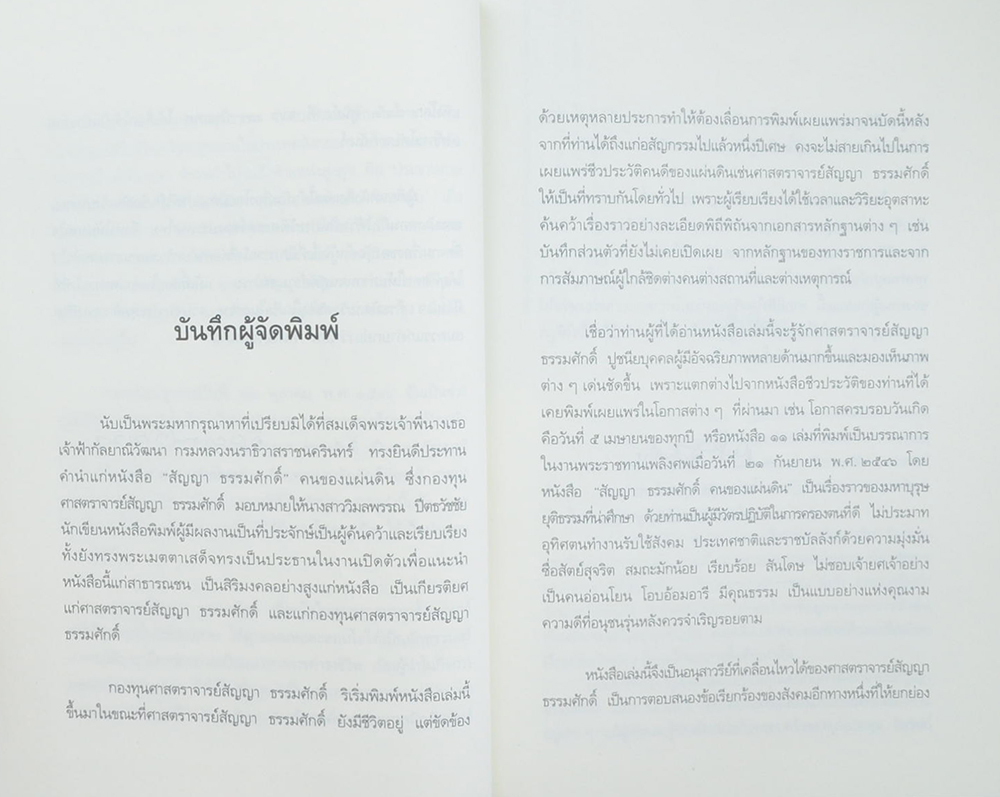 บันทึกผู้จัดพิมพ์
นับเป็นพระมหากรุณาหาที่เปรียบมิได้ที่สมเด็จพระเจ้าพี่นางเธอ
เจ้าฟ้ากัลยาณิวัฒนา กรมหลวงนราธิวาสราชนครินทร์ ทรงยินดีประทาน
คำนำแก่หนังสือ "สัญญา ธรรมศักดิ์" คนของแผ่นดิน ซึ่งกองทุน
ศาสตราจารย์สัญญา ธรรมศักดิ์ มอบหมายให้นางสาววิมลพรรณ ปีตธวัชชัย
นักเขียนหนังสือพิมพ์ผู้มีผลงานเป็นที่ประจักษ์เป็นผู้ค้นคว้าและเรียบเรียง
ทั้งยังทรงพระเมตตาเสด็จทรงเป็นประธานในงานเปิดตัวเพื่อแนะนำ
หนังสือนี้แก่สาธารณชน เป็นสิริมงคลอย่างสูงแก่หนังสือ เป็นเกียรติยศ
แก่ศาสตราจารย์สัญญา ธรรมศักดิ์ และแก่กองทุนศาสตราจารย์สัญญา
ธรรมศักดิ์
กองทุนศาสตราจารย์สัญญา ธรรมศักดิ์ ริเริ่มพิมพ์หนังสือเล่มนี้
ขึ้นมาในขณะที่ศาสตราจารย์สัญญา ธรรมศักดิ์ ยังมีชีวิตอยู่ แต่ขัดข้อง
ด้วยเหตุหลายประการทำให้ต้องเลื่อนการพิมพ์เผยแพร่มาจนบัดนี้หลัง
จากที่ท่านได้ถึงแก่อสัญกรรมไปแล้วหนึ่งปีเศษ คงจะไม่สายเกินไปในการ
เผยแพร่ชีวประวัติคนดีของแผ่นดินเช่นศาสตราจารย์สัญญา ธรรมศักดิ์
ให้เป็นที่ทราบกันโดยทั่วไป เพราะผู้เรียบเรียงได้ใช้เวลาและวิริยะอุตสาหะ
ค้นคว้าเรื่องราวอย่างละเอียดพิถีพิถันจากเอกสารหลักฐานต่าง ๆ เช่น
บันทึกส่วนตัวที่ยังไม่เคยเปิดเผย จากหลักฐานของทางราชการและจาก
การสัมภาษณ์ผู้ใกล้ชิดต่างคนต่างสถานที่และต่างเหตุการณ์
เชื่อว่าท่านผู้ที่ได้อ่านหนังสือเล่มนี้จะรู้จักศาสตราจารย์สัญญา
ธรรมศักดิ์ ปูชนียบุคคลผู้มีอัจฉริยภาพหลายด้านมากขึ้นและมองเห็นภาพ
ต่าง ๆ เด่นชัดขึ้น เพราะแตกต่างไปจากหนังสือชีวประวัติของท่านที่ได้
เคยพิมพ์เผยแพร่ในโอกาสต่าง ๆ ที่ผ่านมา เช่น โอกาสครบรอบวันเกิด
คือวันที่ ๕ เมษายนของทุกปี หรือหนังสือ ๑๑ เล่มที่พิมพ์เป็นบรรณาการ
ในงานพระราชทานเพลิงศพเมื่อวันที่ ๒๑ กันยายน พ.ศ. ๒๕๔๖ โดย
หนังสือ "สัญญา ธรรมศักดิ์ คนของแผ่นดิน" เป็นเรื่องราวของมหาบุรุษ
ยุติธรรมที่น่าศึกษา ด้วยท่านเป็นผู้มีวัตรปฏิบัติในการครองตนที่ดี ไม่ประมาท
อุทิศตนทำงานรับใช้สังคม ประเทศชาติและราชบัลลังก์ด้วยความมุ่งมั่น
ซื่อสัตย์สุจริต สมถะมักน้อย เรียบร้อย สันโดษ ไม่ชอบเจ้ายศเจ้าอย่าง
เป็นคนอ่อนโยน โอบอ้อมอารี มีคุณธรรม เป็นแบบอย่างแห่งคุณงาม
ความดีที่อนุชนรุ่นหลังควรจำเริญรอยตาม
หนังสือเล่มนี้จึงเป็นอนุสาวรีย์ที่เคลื่อนไหวได้ของศาสตราจารย์สัญญา
ธรรมศักดิ์ เป็นการตอบสนองข้อเรียกร้องของสังคมอีกทางหนึ่งที่ให้ยกย่อง